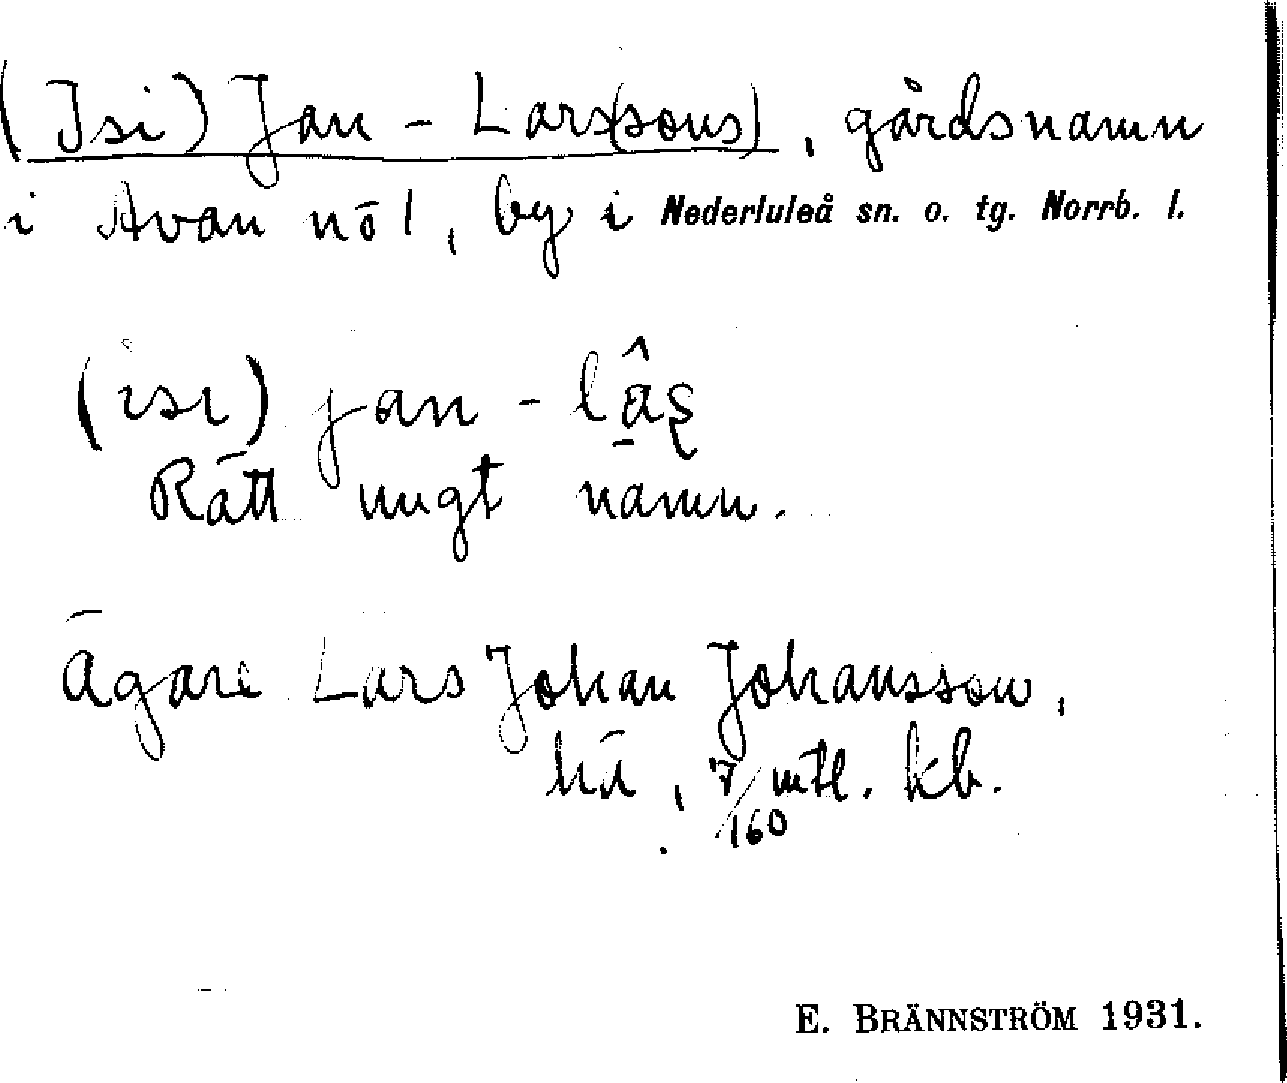 (Isi) Jan - Lars(sons), gårdsnamn
i Avan nö 1, by i Nederluleå sn. o. tg. Norrb. l.
(isi) jan - lâ̱ș
Rätt ungt namn.
Ägare Lars Johan Johansson,
hä, 7/160 mtl. kb.
E. BRÄNNSTRÖM 1931.